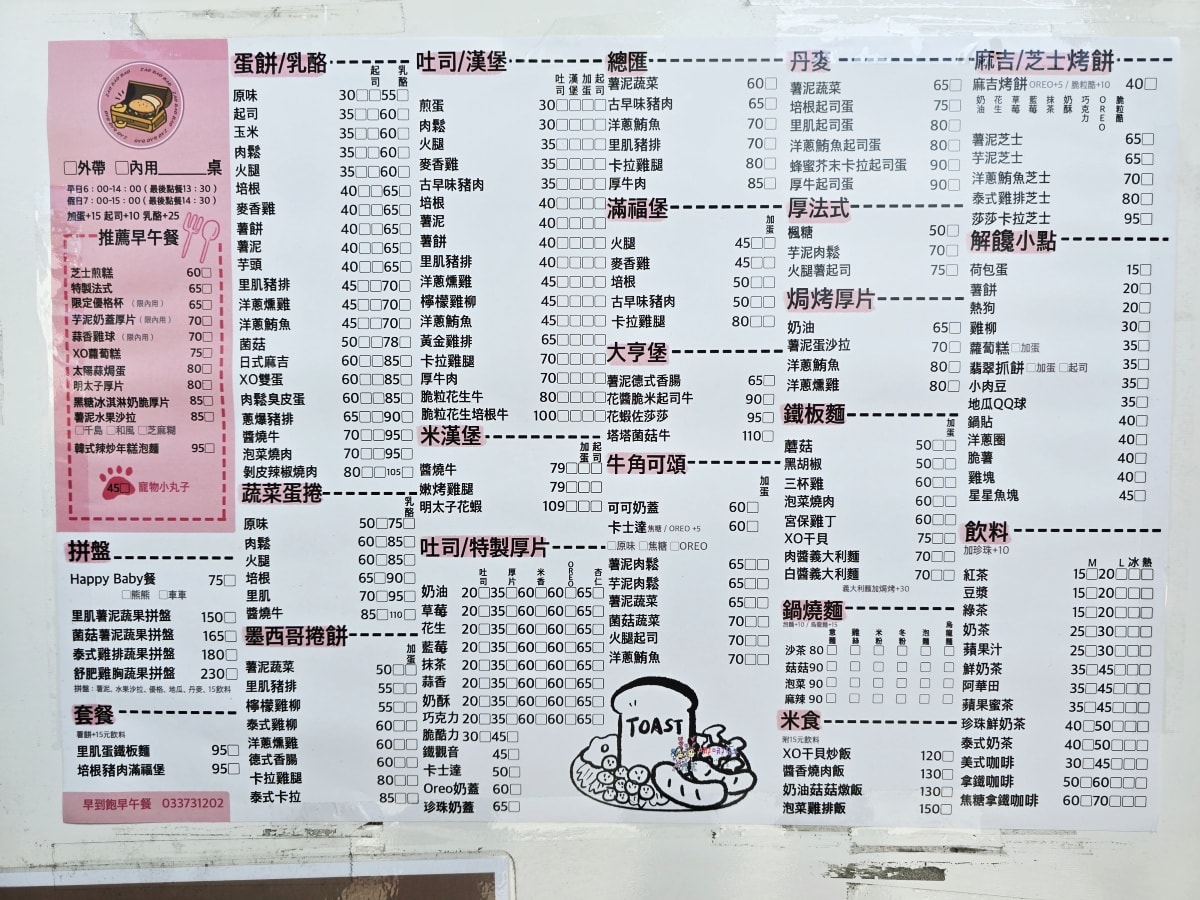 □外帶 □內用______桌
平日6：00-14：00（最後點餐13：30）
假日7：00-15：00（最後點餐14：30）
加蛋+15 起司+10 乳酪+25
推薦早午餐
芝士煎糕 60□
特製法式 65□
限定優格杯（限內用） 65□
芋泥奶蓋厚片（限內用） 70□
蒜香雞球（限內用） 70□
XO蘿蔔糕 75□
太陽蒜焗蛋 80□
明太子厚片 80□
黑糖冰淇淋奶脆厚片 85□
薯泥水果沙拉 85□
□千島 □和風 □芝麻糊
韓式辣炒年糕泡麵 95□
45□ 寵物小丸子
拼盤
Happy Baby餐 75□
□熊熊 □車車
里肌薯泥蔬果拼盤 150□
菌菇薯泥蔬果拼盤 165□
泰式雞排蔬果拼盤 180□
舒肥雞胸蔬果拼盤 230□
拼盤：薯泥、水果沙拉、優格、地瓜、丹麥、15飲料
套餐
薯餅+15元飲料
里肌蛋鐵板麵 95□
培根豬肉滿福堡 95□
早到飽早午餐 033731202
蛋餅/乳酪
起司 乳酪
原味 30□□55□
起司 35□□60□
玉米 35□□60□
肉鬆 35□□60□
火腿 35□□60□
培根 40□□65□
麥香雞 40□□65□
薯餅 40□□65□
薯泥 40□□65□
芋頭 40□□65□
里肌豬排 45□□70□
洋蔥燻雞 45□□70□
洋蔥鮪魚 45□□70□
菌菇 50□□78□
日式麻吉 60□□85□
XO雙蛋 60□□85□
肉鬆臭皮蛋 60□□85□
蔥爆豬排 65□□90□
醬燒牛 70□□95□
泡菜燒肉 70□□95□
剝皮辣椒燒肉 80□□105□
蔬菜蛋捲
乳酪
原味 50□75□
肉鬆 60□85□
火腿 60□85□
培根 65□90□
里肌 70□95□
醬燒牛 85□110□
墨西哥捲餅
加蛋
薯泥蔬菜 50□□
里肌豬排 55□□
檸檬雞柳 55□□
泰式雞柳 60□□
洋蔥燻雞 60□□
德式香腸 60□□
卡拉雞腿 80□□
泰式卡拉 85□□
吐司/漢堡
吐司 漢堡 加蛋 起司
煎蛋 30□□□□
肉鬆 30□□□□
火腿 35□□□□
麥香雞 35□□□□
古早味豬肉 35□□□□
培根 40□□□□
薯泥 40□□□□
薯餅 40□□□□
里肌豬排 40□□□□
洋蔥燻雞 45□□□□
檸檬雞柳 45□□□□
洋蔥鮪魚 45□□□□
黃金雞排 65□□□□
卡拉雞腿 70□□□□
厚牛肉 70□□□□
脆粒花生牛 80□□□□
脆粒花生培根牛 100□□□□
米漢堡
加蛋 起司
醬燒牛 79□□□
嫩烤雞腿 79□□□
明太子花蝦 109□□□
吐司/特製厚片
吐司 厚片 米香 OREO 杏仁
奶油 20□35□60□60□65□
草莓 20□35□60□60□65□
花生 20□35□60□60□65□
藍莓 20□35□60□60□65□
抹茶 20□35□60□60□65□
蒜香 20□35□60□60□65□
奶酥 20□35□60□60□65□
巧克力 20□35□60□60□65□
脆酷力 30□45□
鐵觀音 45□
卡士達 50□
Oreo奶蓋 60□
珍珠奶蓋 65□
總匯
薯泥蔬菜 60□
古早味豬肉 65□
洋蔥鮪魚 70□
里肌豬排 70□
卡拉雞腿 80□
厚牛肉 85□
滿福堡
加蛋
火腿 45□□
麥香雞 45□□
培根 50□□
古早味豬肉 50□□
卡拉雞腿 80□□
大亨堡
薯泥德式香腸 65□
花醬脆米起司牛 90□
花蝦佐莎莎 95□
塔塔菌菇牛 110□
牛角可頌
加蛋
可可奶蓋 60□
卡士達 焦糖 / OREO +5 60□
□原味 □焦糖 □OREO
薯泥肉鬆 65□□
芋泥肉鬆 65□□
薯泥蔬菜 65□□
菌菇蔬菜 70□□
火腿起司 70□□
洋蔥鮪魚 70□□
TOAST
丹麥
薯泥蔬菜 65□
培根起司蛋 75□
里肌起司蛋 80□
洋蔥鮪魚起司蛋 80□
蜂蜜芥末卡拉起司蛋 90□
厚牛起司蛋 90□
厚法式
楓糖 50□
芋泥肉鬆 70□
火腿薯起司 75□
焗烤厚片
奶油 65□
薯泥蛋沙拉 70□
洋蔥鮪魚 80□
洋蔥燻雞 80□
鐵板麵
加蛋
蘑菇 50□□
黑胡椒 50□□
三杯雞 60□□
泡菜燒肉 60□□
宮保雞丁 60□□
XO干貝 75□□
肉醬義大利麵 70□□
白醬義大利麵 70□□
義大利麵加焗烤+30
鍋燒麵
泡麵+10 / 烏龍麵+15
意麵 雞絲 米粉 冬粉 泡麵 烏龍麵
沙茶 80 □ □ □ □ □ □
菇菇 90 □ □ □ □ □ □
泡菜 90 □ □ □ □ □ □
麻辣 90 □ □ □ □ □ □
米食
附15元飲料
XO干貝炒飯 120□
醬香燒肉飯 130□
奶油菇菇燉飯 130□
泡菜雞排飯 150□
麻吉/芝士烤餅
麻吉烤餅 OREO+5 / 脆粒酷+10 40□
奶油 花生 草莓 藍莓 抹茶 奶酥 巧克力 OREO 脆粒酷
薯泥芝士 65□
芋泥芝士 65□
洋蔥鮪魚芝士 70□
泰式雞排芝士 80□
莎莎卡拉芝士 95□
解饞小點
荷包蛋 15□
薯餅 20□
熱狗 20□
雞柳 30□
蘿蔔糕 □加蛋 35□
翡翠抓餅 □加蛋 □起司 35□
小肉豆 35□
地瓜QQ球 35□
鍋貼 40□
洋蔥圈 40□
脆薯 40□
雞塊 40□
星星魚塊 45□
飲料
加珍珠+10
M L 冰 熱
紅茶 15□20□□□
豆漿 15□20□□□
綠茶 15□20□□□
奶茶 25□30□□□
蘋果汁 25□30□□□
鮮奶茶 35□45□□□
阿華田 35□45□□□
蘋果蜜茶 35□45□□□
珍珠鮮奶茶 40□50□□□
泰式奶茶 40□50□□□
美式咖啡 30□45□□□
拿鐵咖啡 50□60□□□
焦糖拿鐵咖啡 60□70□□□